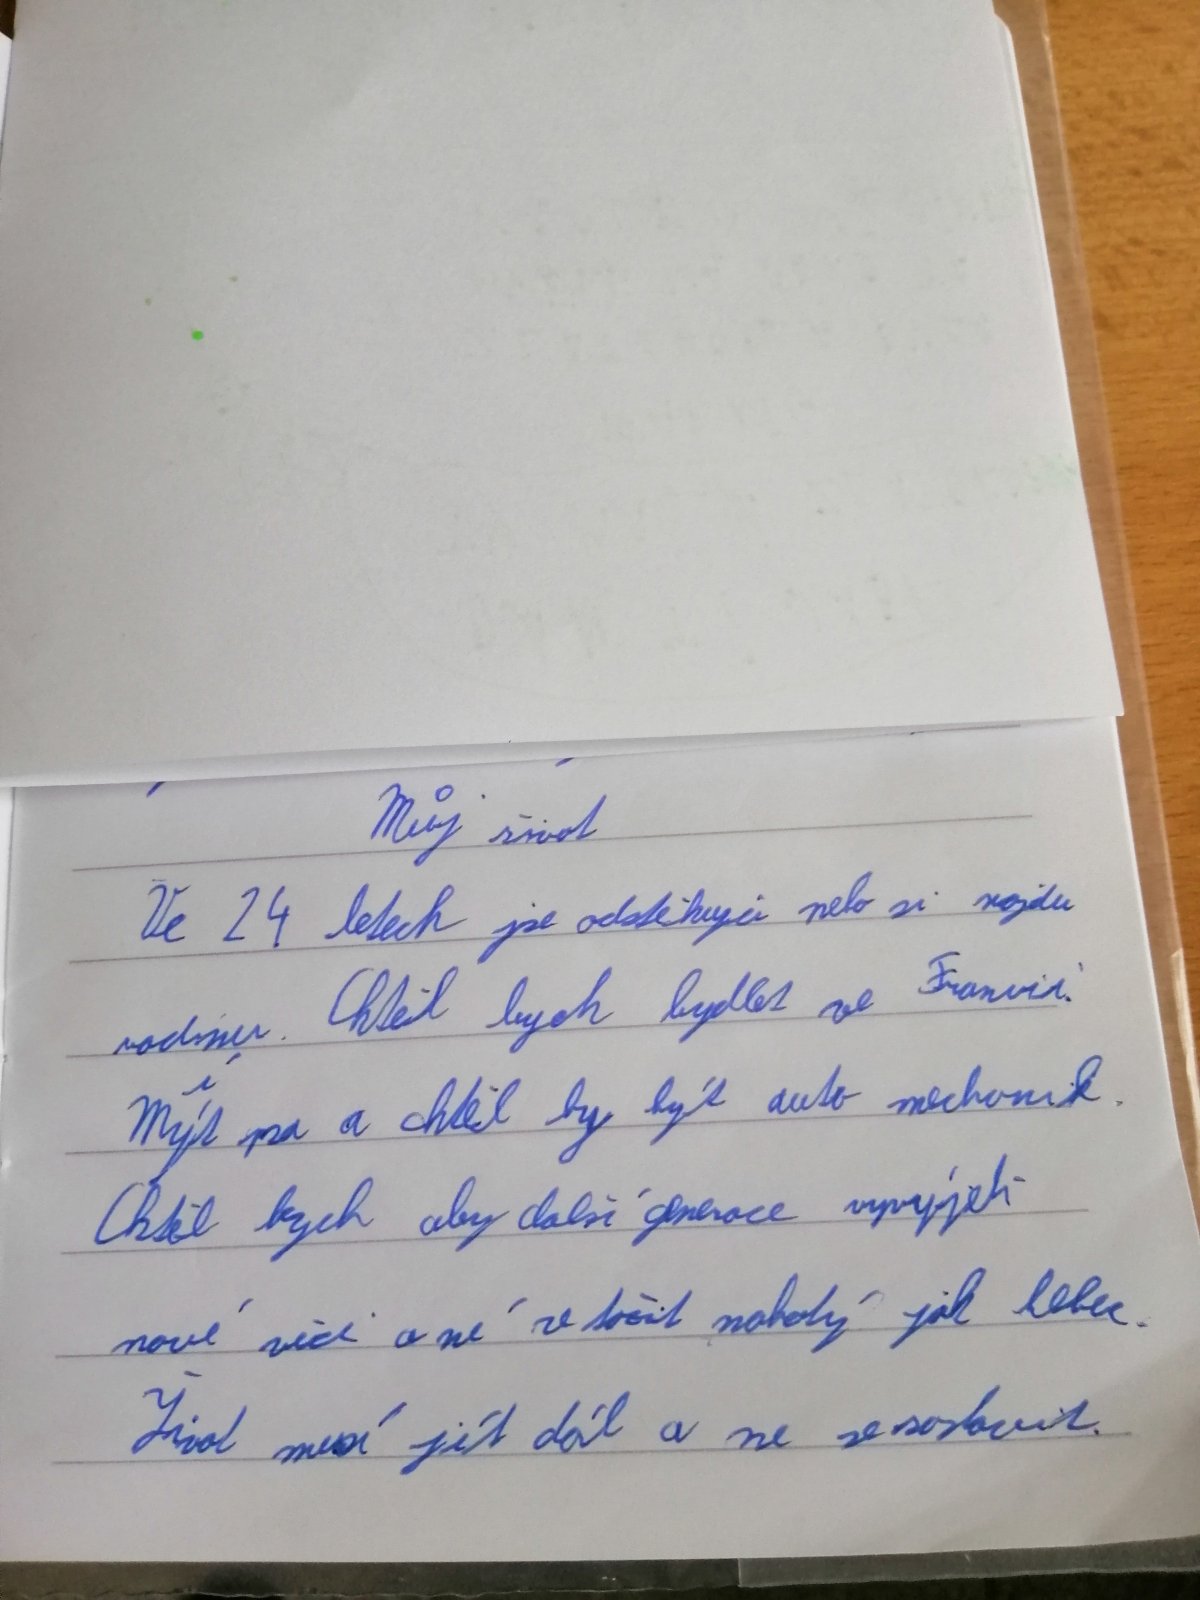 Můj život
Ve 24 letech jse odstěhuji nebo si najdu
rodinu. Chtěl bych bydlet ve Francii.
Mýt psa a chtěl by být auto mechanik.
Chtěl bych aby další generace vyvýjeli
nové věci a né se točit jak
Život musí jít dál a ne se zastavit.